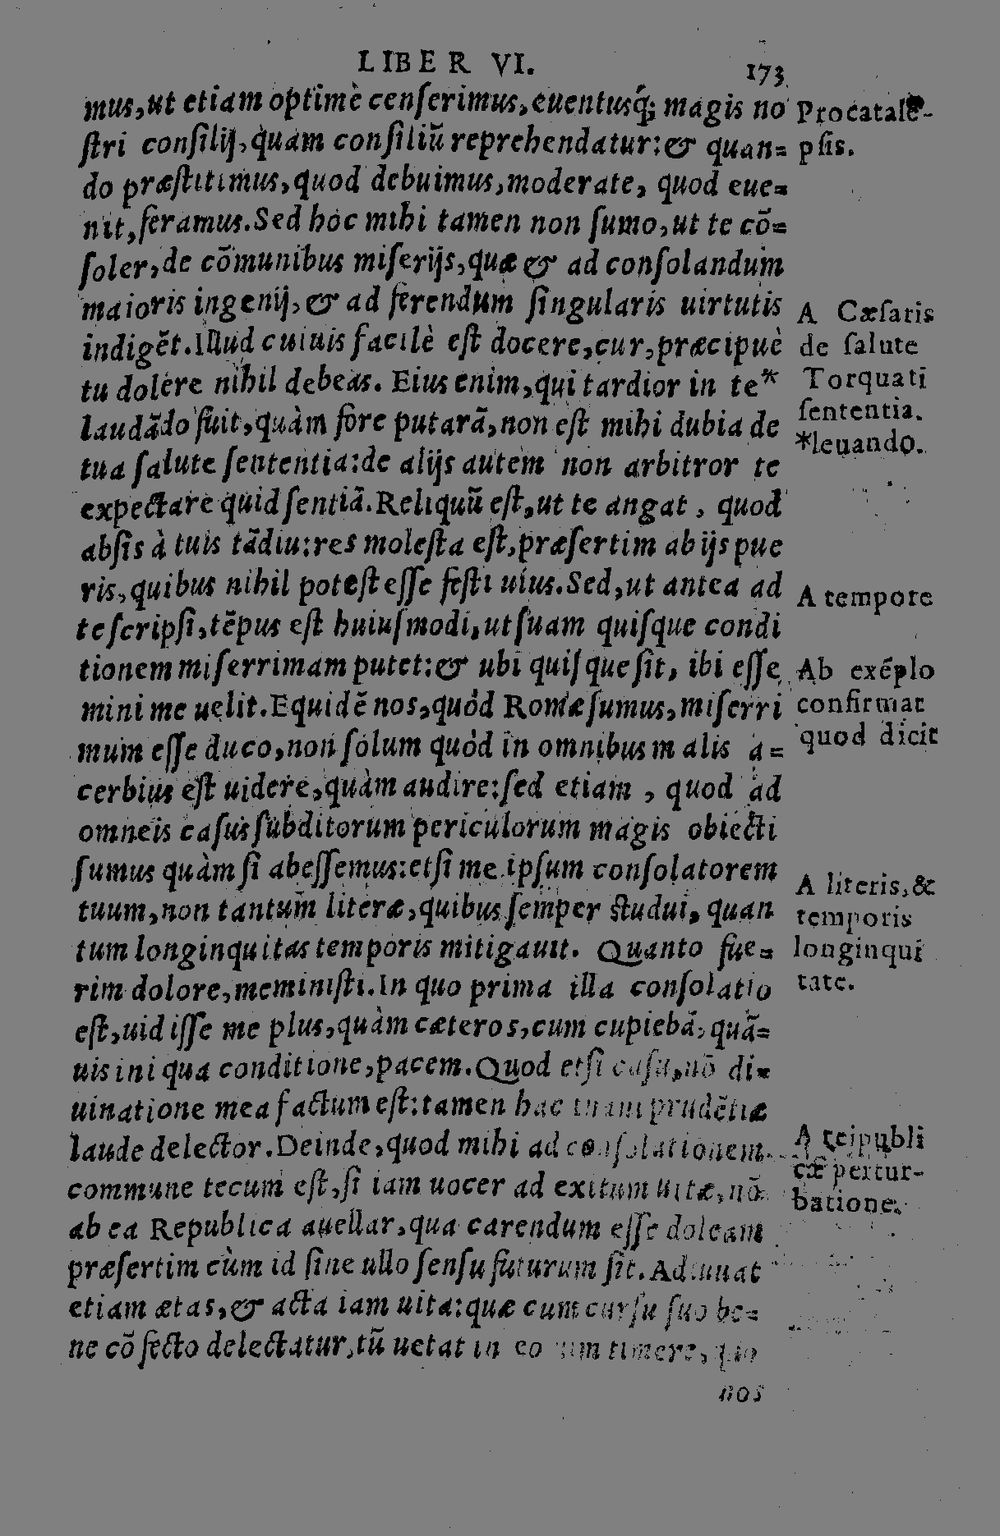 LIBER VI.
173
mus,ut etiam optimè censerimus,euentusq́; magis no
stri consilij,quàm consiliũ reprehendatur:& quan=
do præstitimus,quod debuimus,moderate, quod eue=
nit,feramus.Sed hoc mihi tamen non sumo,ut te cõ=
soler,de cõmunibus miserijs,quæ & ad consolandum
maioris ingenij,& ad ferendum singularis uirtutis
indigẽt.Illud cuiuis facilè est docere,cur,præcipuè
tu dolere nihil debeas. Eius enim,qui tardior in te*
laudãdo fuit,quàm fore putarã,non est mihi dubia de
tua salute sententia:de alijs autem non arbitror te
expectare quid sentiã.Reliquũ est,ut te angat, quod
absis à tuis tãdiu:res molesta est,præsertim ab ijs pue
ris,quibus nihil potest esse festi uius.Sed,ut antea ad
te scripsi,tẽpus est huiusmodi,ut suam quisque condi
tionem miserrimam putet:& ubi quisque sit, ibi esse
mini me uelit.Equidẽ nos,quòd Romæ sumus,miserri
mum esse duco,non solum quòd in omnibus malis a=
cerbius est uidere,quàm audire:sed etiam , quod ad
omneis casus subditorum periculorum magis obiecti
sumus quàm si abessemus:etsi me ipsum consolatorem
tuum,non tantum literæ,quibus semper studui, quan
tum longinquitas temporis mitigauit. Quanto fue=
rim dolore,meministi.In quo prima illa consolatio
est,uidisse me plus,quàm cæteros,cum cupiebã,quã=
uis iniqua conditione,pacem.Quod etsi casu,nõ di=
uinatione mea factum est:tamen hac inani prudẽtiæ
laude delector.Deinde,quod mihi ad consolationem
commune tecum est,si iam uocer ad exitum uitæ,nõ
ab ea Republica auellar,qua carendum esse doleam
præsertim cùm id sine ullo sensu futurum sit.Adiuuat
etiam ætas,& acta iam uita:quæ cum cursu suo be=
ne cõfecto delectatur,tũ uetat in eo uim timere, quo
nos
Procatale-
psis.
A Cæsaris
de salute
Torquati
sententia.
*leuando.
A tempore
Ab exẽplo
confirmat
quod dicit
A literis,&
temporis
longinqui
tate.
A reipubli
cæ pertur-
batione.